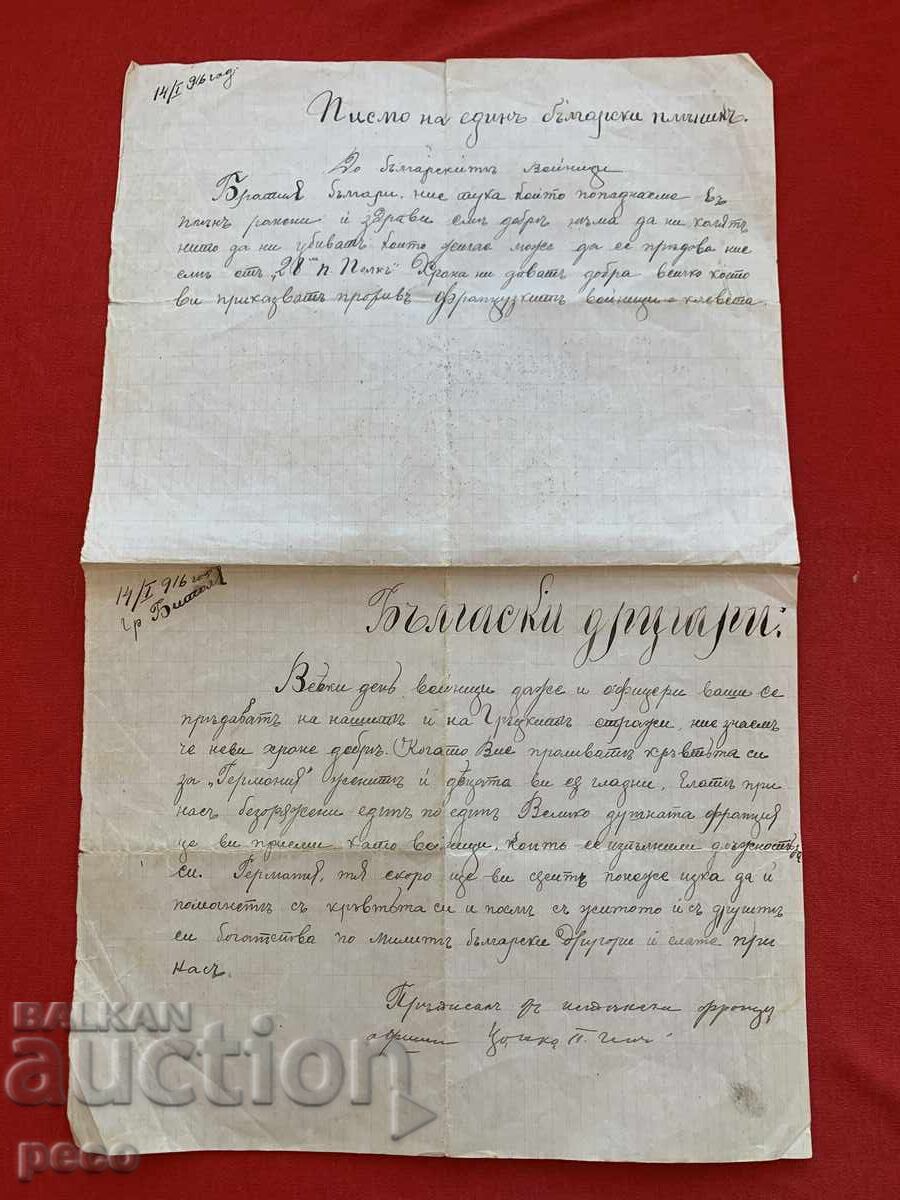 14/I 916 год
Писмо на единъ български плѣникъ.
До българскитѣ Войници
Братия българи, ние тука който попаднаеме въ
плѣнъ ранени и здрави сме добрѣ нѣма да ни колятъ
нито да ни убиватъ който желае може да се прѣдава ние
сме отъ „28ми п. Полкъ" Храна ни даватъ добра всичко което
ви приказватъ противъ французкитѣ войници е клевета.
14/I 916 год
гр Битоля
Бългаски другари:
Всѣки день войници даже и офицери ваши се
прѣдаватъ на нашитѣ и на Гръцкитѣ стражи, ние знаемъ
че неви хране добрѣ. Когато Вие проливатѣ кръвьта си
за „Германия" женитѣ и дѣцата ви са гладни, Елатѣ при
насъ безоржжени единъ по единъ Велико душната франция
ще ви приеми като войници, които се изпълнили длъжностьта
си. Германия, тя скоро ще ви смѣтъ понеже иска да й
помогнетѣ съ кръвьта си и послѣ съ житото и съ другитѣ
си богатства по Милитѣ български Другари и елате при
насъ.
Прѣписалъ отъ истински френцки